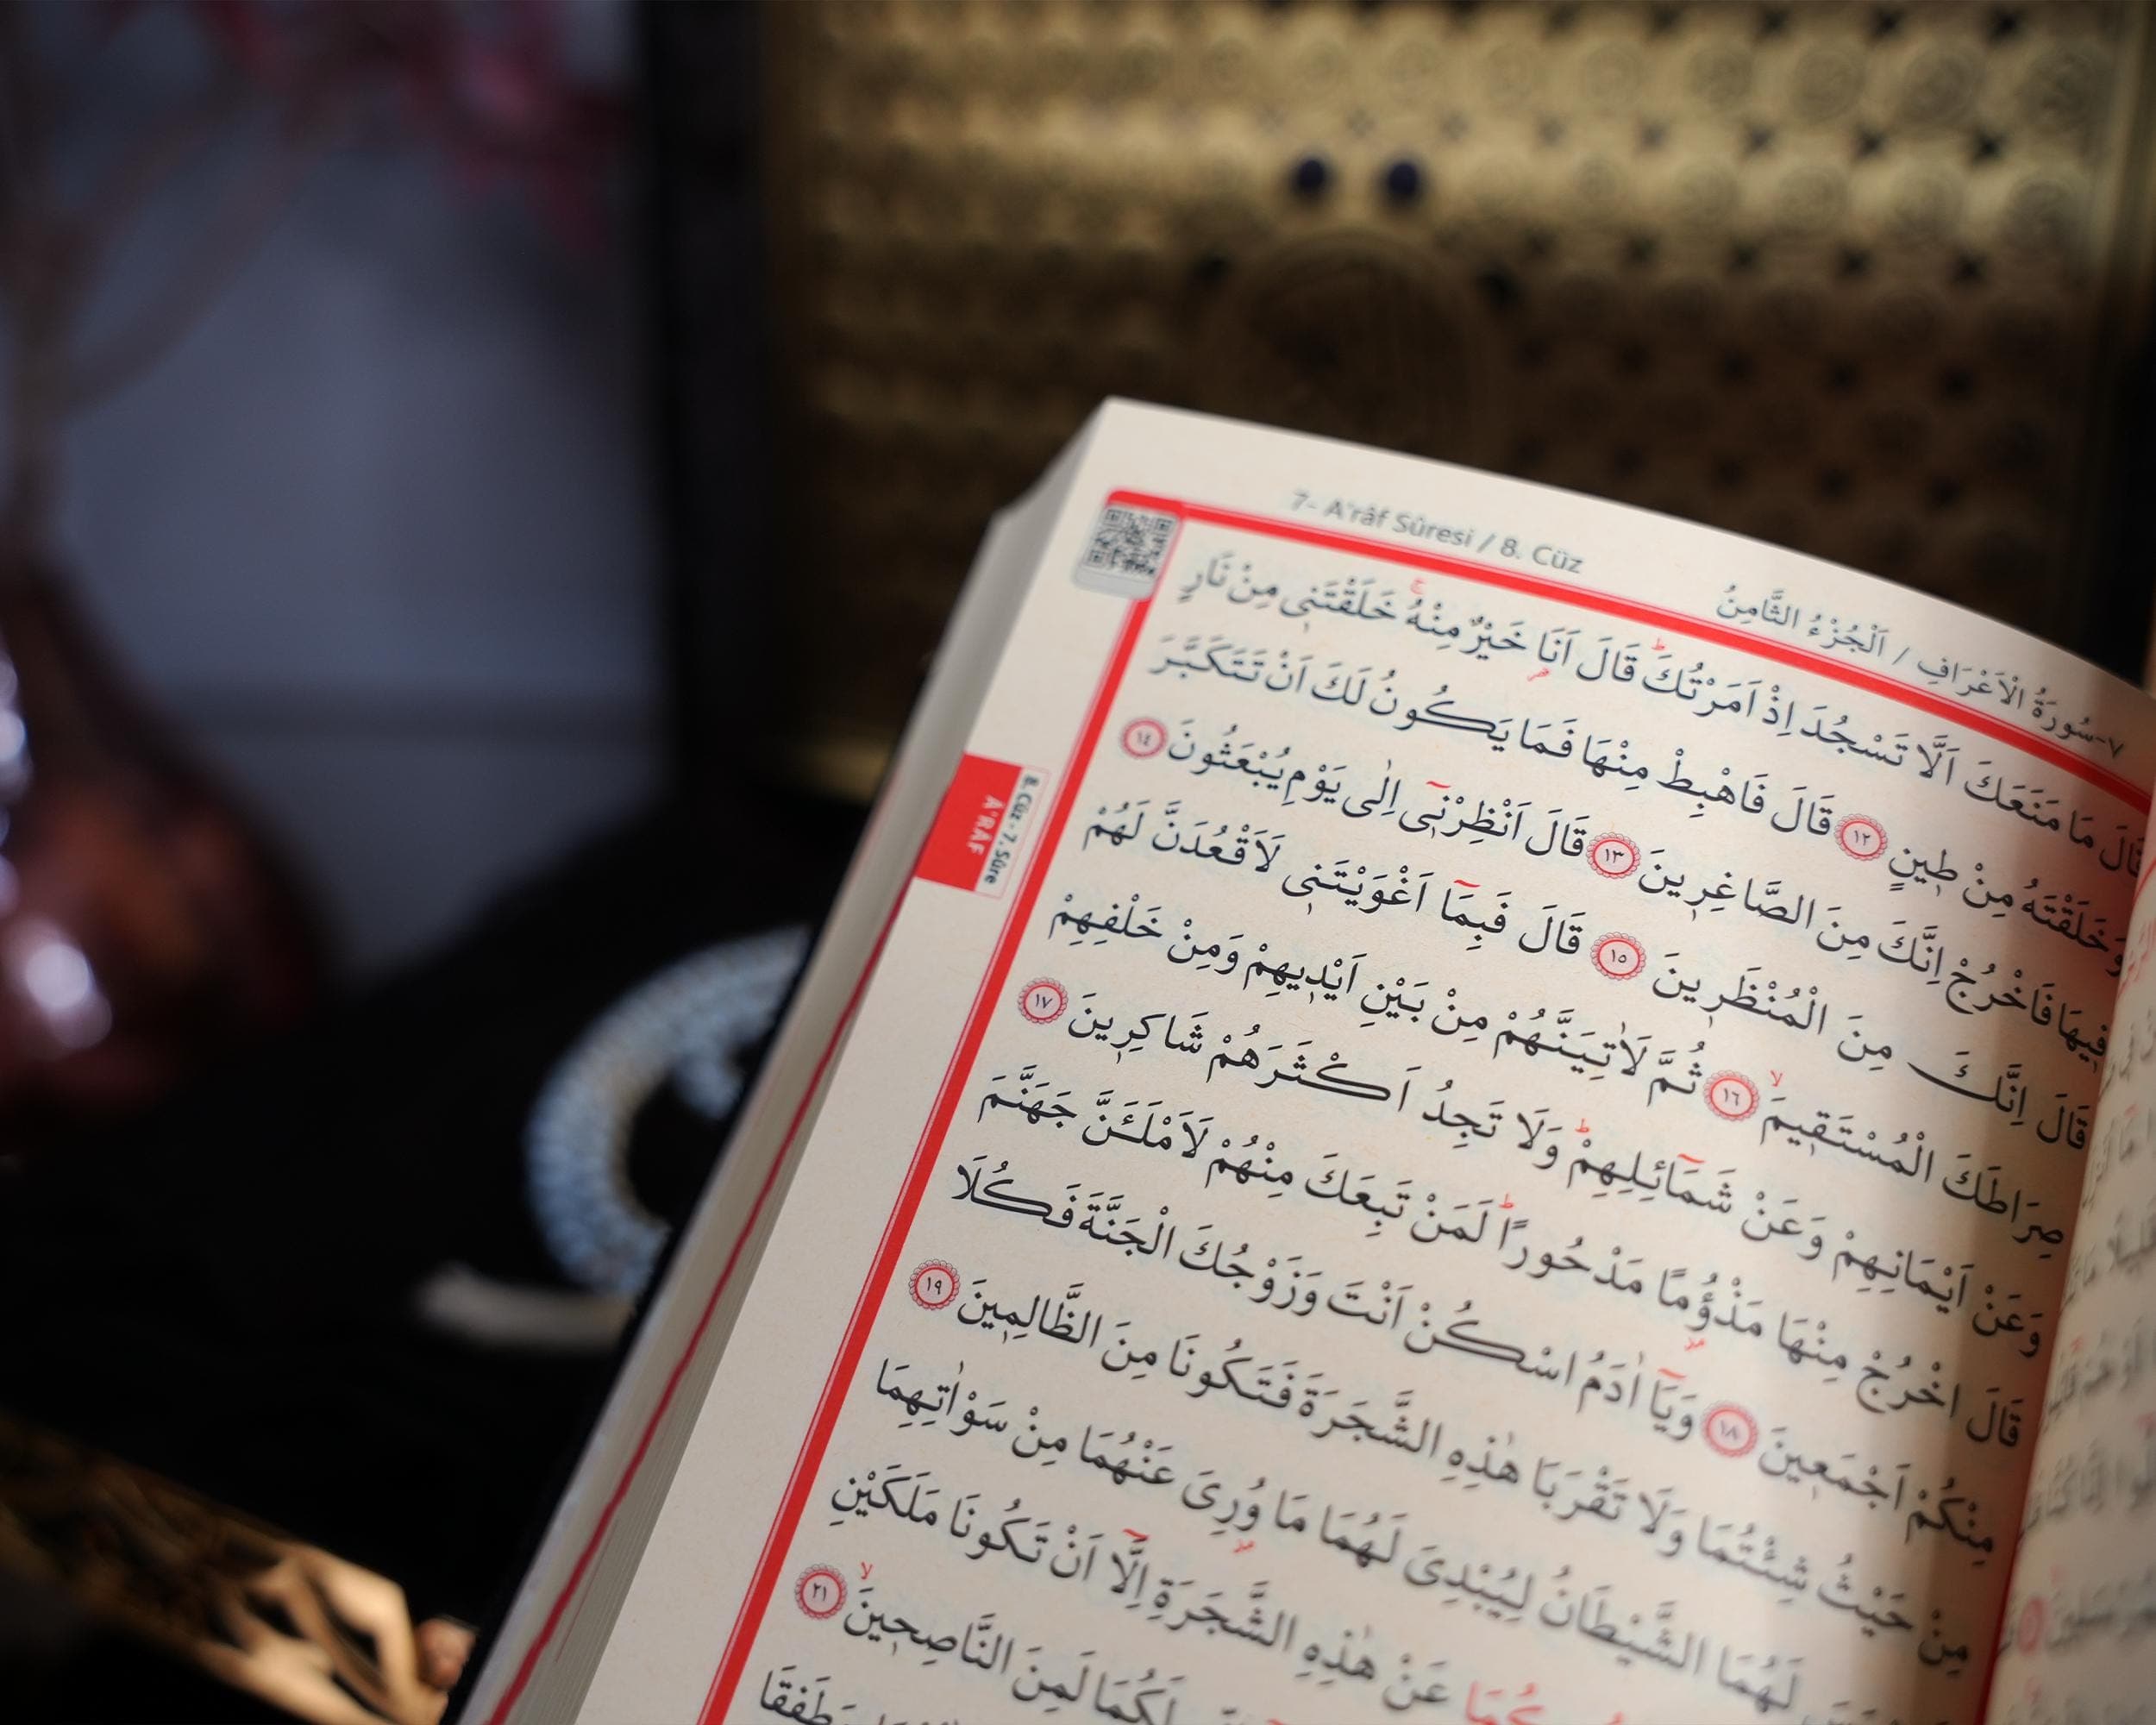 7- A'râf Sûresi / 8. Cüz
٧-سُورَةُ الْاَعْرَافِ / اَلْجُزْءُ الثَّامِنُ
قَالَ مَا مَنَعَكَ اَلَّا تَسْجُدَ اِذْ اَمَرْتُكَۜ قَالَ اَنَا۬ خَيْرٌ مِنْهُۚ خَلَقْتَنٖى مِنْ نَارٍ
وَخَلَقْتَهُ مِنْ طٖينٍ ١٢ قَالَ فَاهْبِطْ مِنْهَا فَمَا يَكُونُ لَكَ اَنْ تَتَكَبَّرَ
فٖيهَا فَاخْرُجْ اِنَّكَ مِنَ الصَّاغِرٖينَ ١٣ قَالَ اَنْظِرْنٖٓى اِلٰى يَوْمِ يُبْعَثُونَ ١٤
قَالَ اِنَّكَ مِنَ الْمُنْظَرٖينَ ١٥ قَالَ فَبِمَٓا اَغْوَيْتَنٖى لَاَقْعُدَنَّ لَهُمْ
صِرَاطَكَ الْمُسْتَقٖيمَۙ ١٦ ثُمَّ لَاٰتِيَنَّهُمْ مِنْ بَيْنِ اَيْدٖيهِمْ وَمِنْ خَلْفِهِمْ
وَعَنْ اَيْمَانِهِمْ وَعَنْ شَمَٓائِلِهِمْۜ وَلَا تَجِدُ اَكْثَرَهُمْ شَاكِرٖينَ ١٧
قَالَ اخْرُجْ مِنْهَا مَذْؤُ۫مًا مَدْحُورًاۜ لَمَنْ تَبِعَكَ مِنْهُمْ لَاَمْلَـَٔنَّ جَهَنَّمَ
مِنْكُمْ اَجْمَعٖينَ ١٨ وَيَٓا اٰدَمُ اسْكُنْ اَنْتَ وَزَوْجُكَ الْجَنَّةَ فَكُلَا
مِنْ حَيْثُ شِئْتُمَا وَلَا تَقْرَبَا هٰذِهِ الشَّجَرَةَ فَتَكُونَا مِنَ الظَّالِمٖينَ ١٩
لَهُمَا الشَّيْطَانُ لِيُبْدِىَ لَهُمَا مَا وُ۫رِىَ عَنْهُمَا مِنْ سَوْاٰتِهِمَا
عَنْ هٰذِهِ الشَّجَرَةِ اِلَّٓا اَنْ تَكُونَا مَلَكَيْنِ
لَكُمَا لَمِنَ النَّاصِحٖينَۙ ٢١
8. Cüz - 7. Sûre
A'RAF